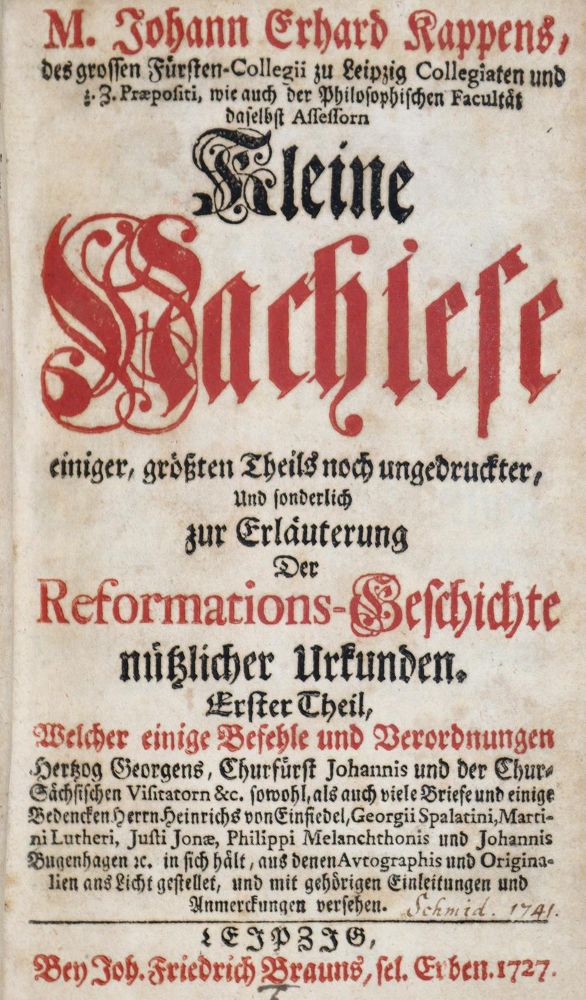 M. Johann Erhard Kappens,
des grossen Fürsten-Collegii zu Leipzig Collegiaten und
z. Z. Præpositi, wie auch der Philosophischen Facultät
daselbst Assessorn
Kleine
Nachlese
einiger, größten Theils noch ungedruckter,
Und sonderlich
zur Erläuterung
Der
Reformations-Geschichte
nützlicher Urkunden.
Erster Theil,
Welcher einige Befehle und Verordnungen
Hertzog Georgens, Churfürst Johannis und der Chur-
Sächsischen Visitatorn &c. sowohl, als auch viele Briefe und einige
Bedencken Herrn Heinrichs von Einsiedel, Georgii Spalatini, Marti-
ni Lutheri, Justi Jonæ, Philippi Melanchthonis und Johannis
Bugenhagen ꝛc. in sich hält, aus denen Avtographis und Origina-
lien ans Licht gestellet, und mit gehörigen Einleitungen und
Anmerckungen versehen. Schmid. 1741.
LEIPZIG,
Bey Joh. Friedrich Brauns, sel. Erben. 1727.